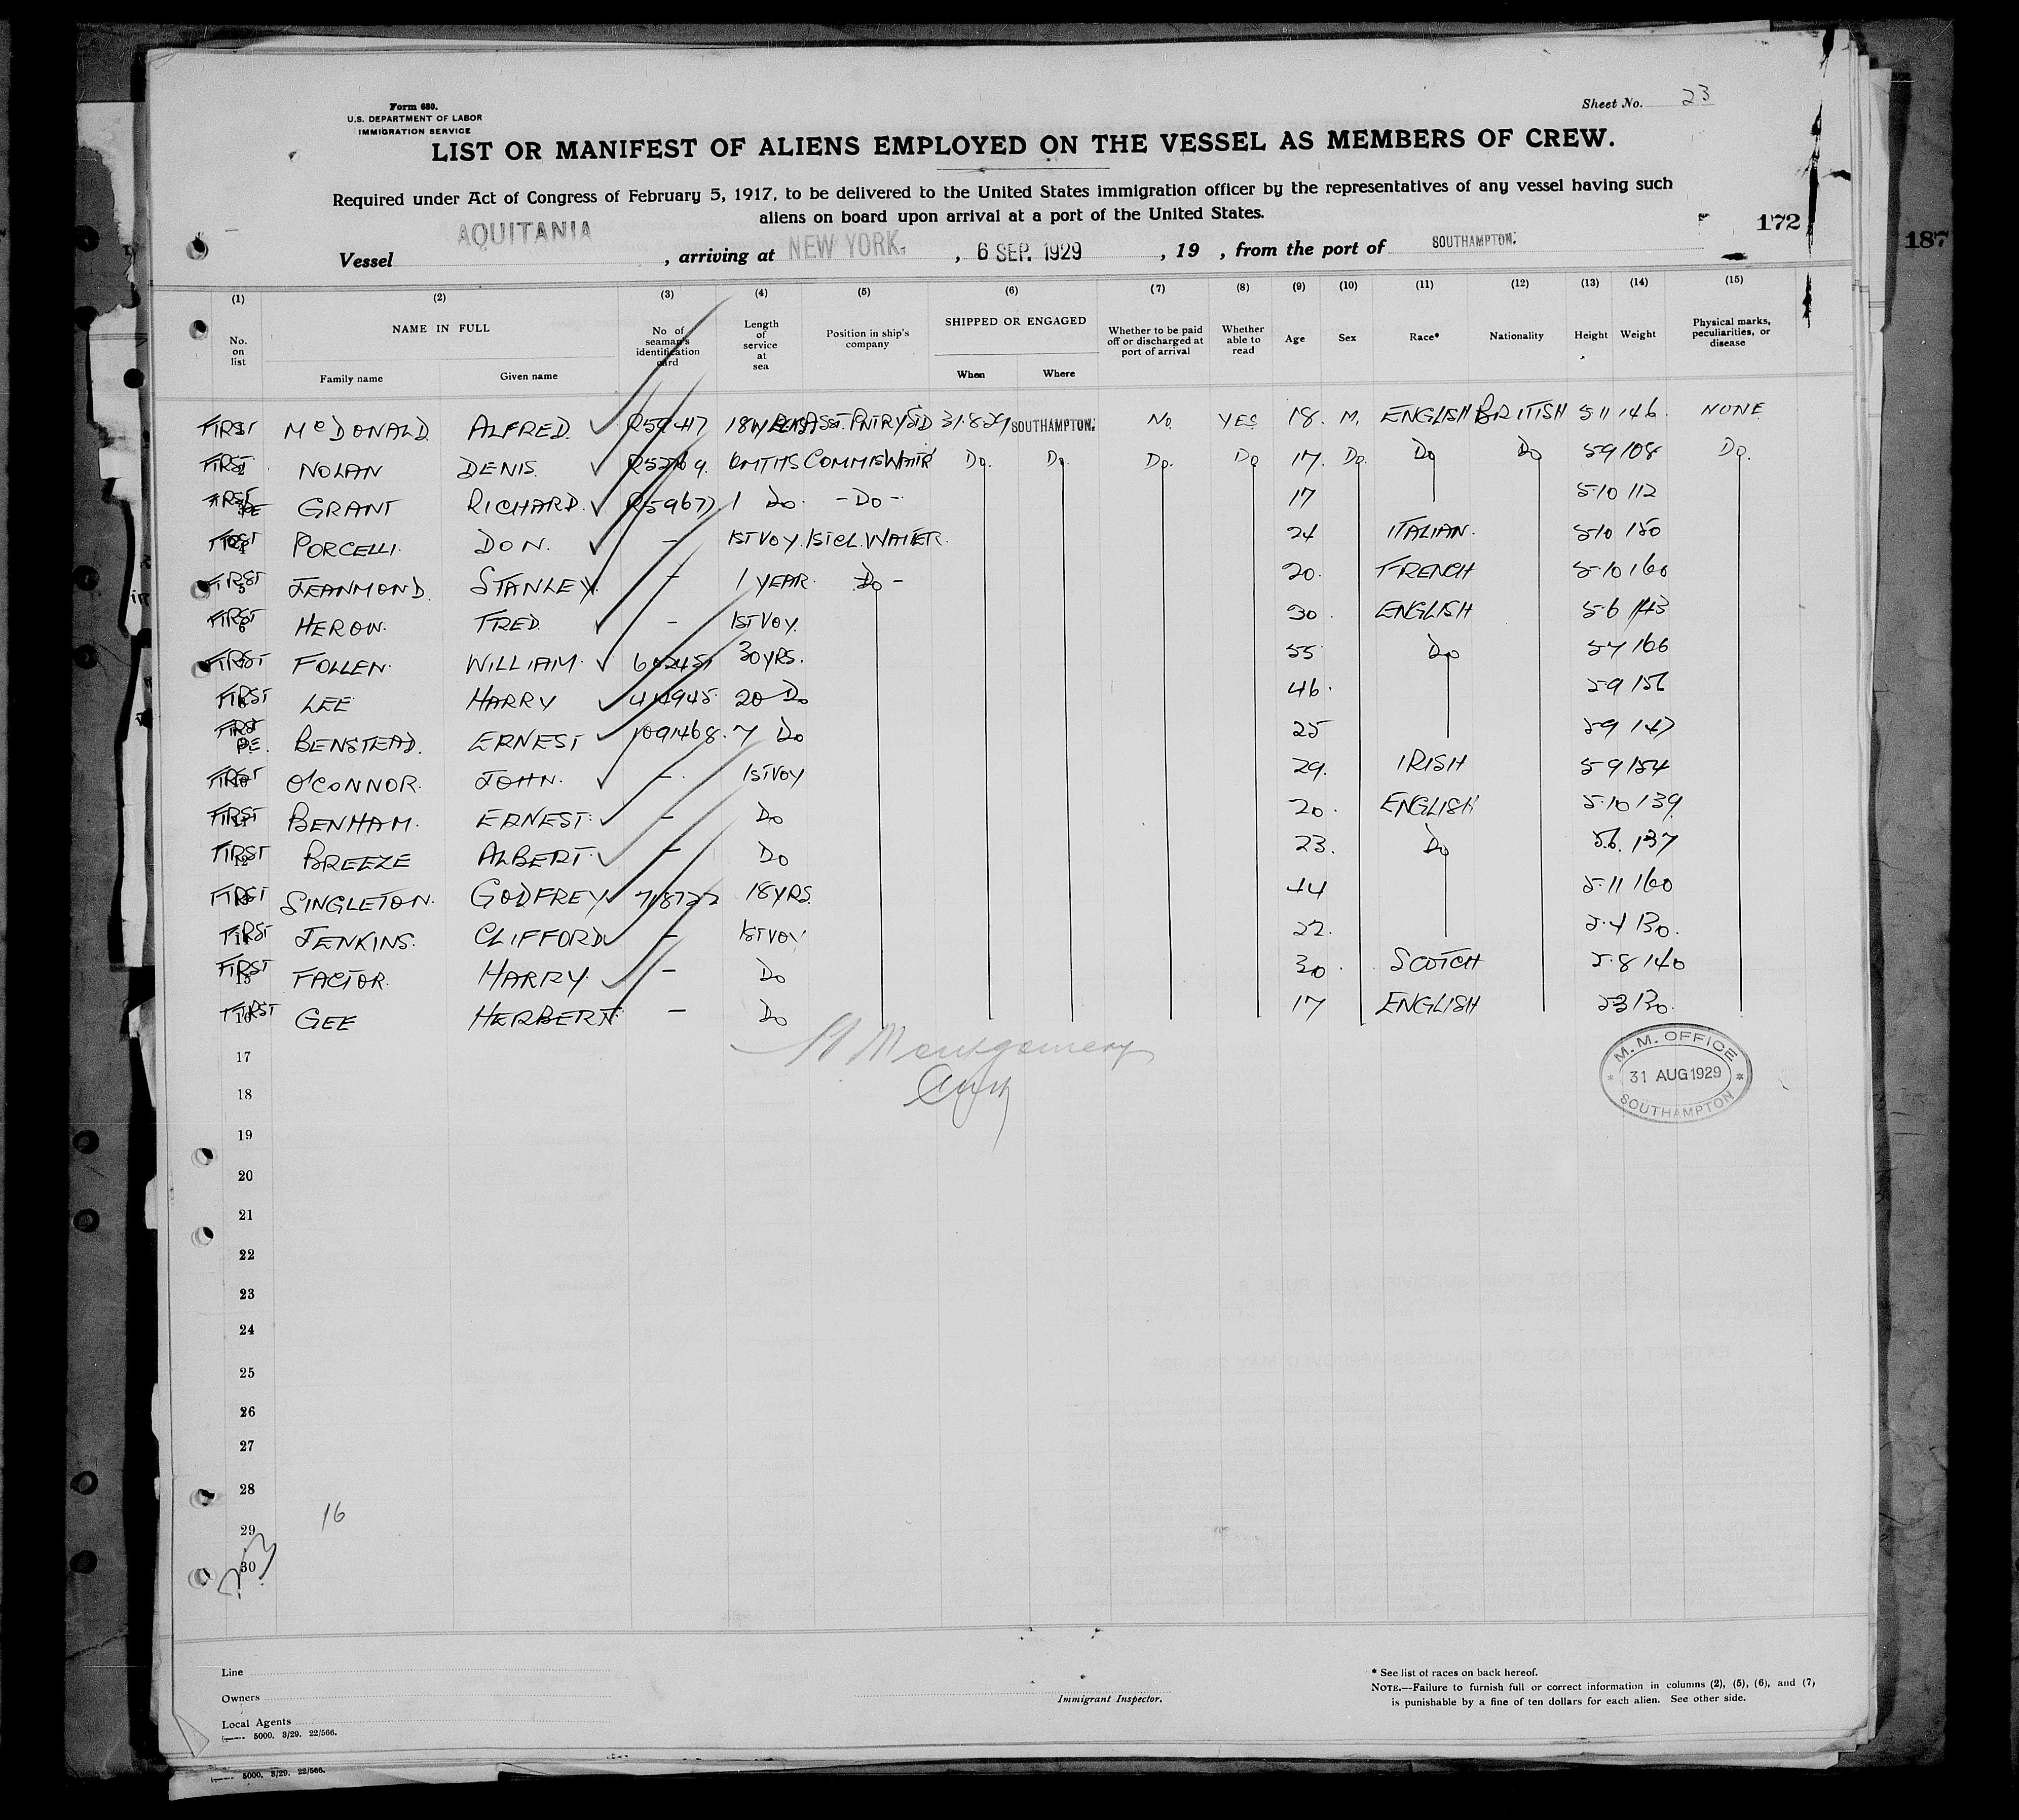 Form 680.
U.S. DEPARTMENT OF LABOR
IMMIGRATION SERVICE
Sheet No. 23
LIST OR MANIFEST OF ALIENS EMPLOYED ON THE VESSEL AS MEMBERS OF CREW.
Required under Act of Congress of February 5, 1917, to be delivered to the United States immigration officer by the representatives of any vessel having such
aliens on board upon arrival at a port of the United States.
172
187
Vessel AQUITANIA, arriving at NEW YORK, 6 SEP. 1929, 19 , from the port of SOUTHAMPTON.
(1) (2) (3) (4) (5) (6) (7) (8) (9) (10) (11) (12) (13) (14) (15)
No. on list
NAME IN FULL
Family name Given name
No. of seaman's identification card
Length of service at sea
Position in ship's company
SHIPPED OR ENGAGED
When Where
Whether to be paid off or discharged at port of arrival
Whether able to read
Age Sex Race* Nationality Height Weight
Physical marks, peculiarities, or disease
FIRST McDONALD ALFRED. 31.8.29 SOUTHAMPTON. No YES 18. M. ENGLISH BRITISH 5 11 146 NONE
FIRST NOLAN DENIS. COMMIS WAITR Do. Do. Do. Do 17. Do. Do Do 5 9 108 Do.
FIRST GRANT RICHARD. R59677 1 Do. - Do - 17 5 10 112
FIRST PORCELLI. DON. - 1ST VOY. 1ST CL. WAITER. 24 ITALIAN. 5 10 150
FIRST JEANMOND. STANLEY - 1 YEAR. Do - 20. FRENCH 5 10 160
FIRST HEROW. FRED. - 1ST VOY. 30. ENGLISH 5 6 143
FIRST FOLLEN. WILLIAM. 30 YRS. 55 Do 5 7 166
FIRST LEE HARRY 20 Do 46. 5 9 156
FIRST BENSTEAD. ERNEST 1091468. 7 Do 25 5 9 147
FIRST O'CONNOR. JOHN. - 1ST VOY 29. IRISH 5 9 154
FIRST BENHAM. ERNEST. - Do 20. ENGLISH 5.10 139
FIRST 12 BREEZE ALBERT. - Do 23. Do 5.6. 137
FIRST SINGLETON. GODFREY 718722 18 YRS. 44 5.11 160
FIRST 14 JENKINS. CLIFFORD - 1ST VOY 22. 5.4 130.
FIRST 15 FACTOR. HARRY. - Do 30. SCOTCH 5.8 140
FIRST 16 GEE HERBERT. - Do 17 ENGLISH 5 3 130.
Montgomery
M. M. OFFICE
31 AUG 1929
SOUTHAMPTON
17
18
19
20
21
22
23
24
25
26
27
28
16
29
30
23
Line
Owners
Local Agents
5000. 3/29. 22/566.
Immigrant Inspector.
* See list of races on back hereof.
NOTE.—Failure to furnish full or correct information in columns (2), (5), (6), and (7)
is punishable by a fine of ten dollars for each alien. See other side.
5000. 3/29. 22/566.